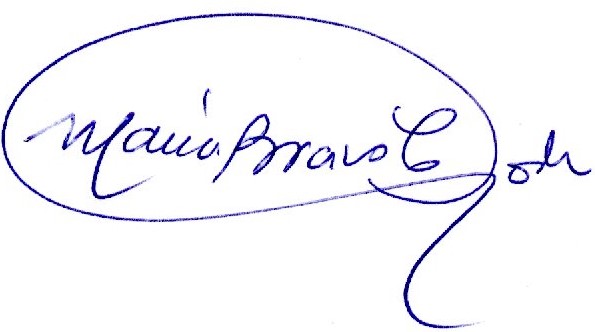 María Bravo C